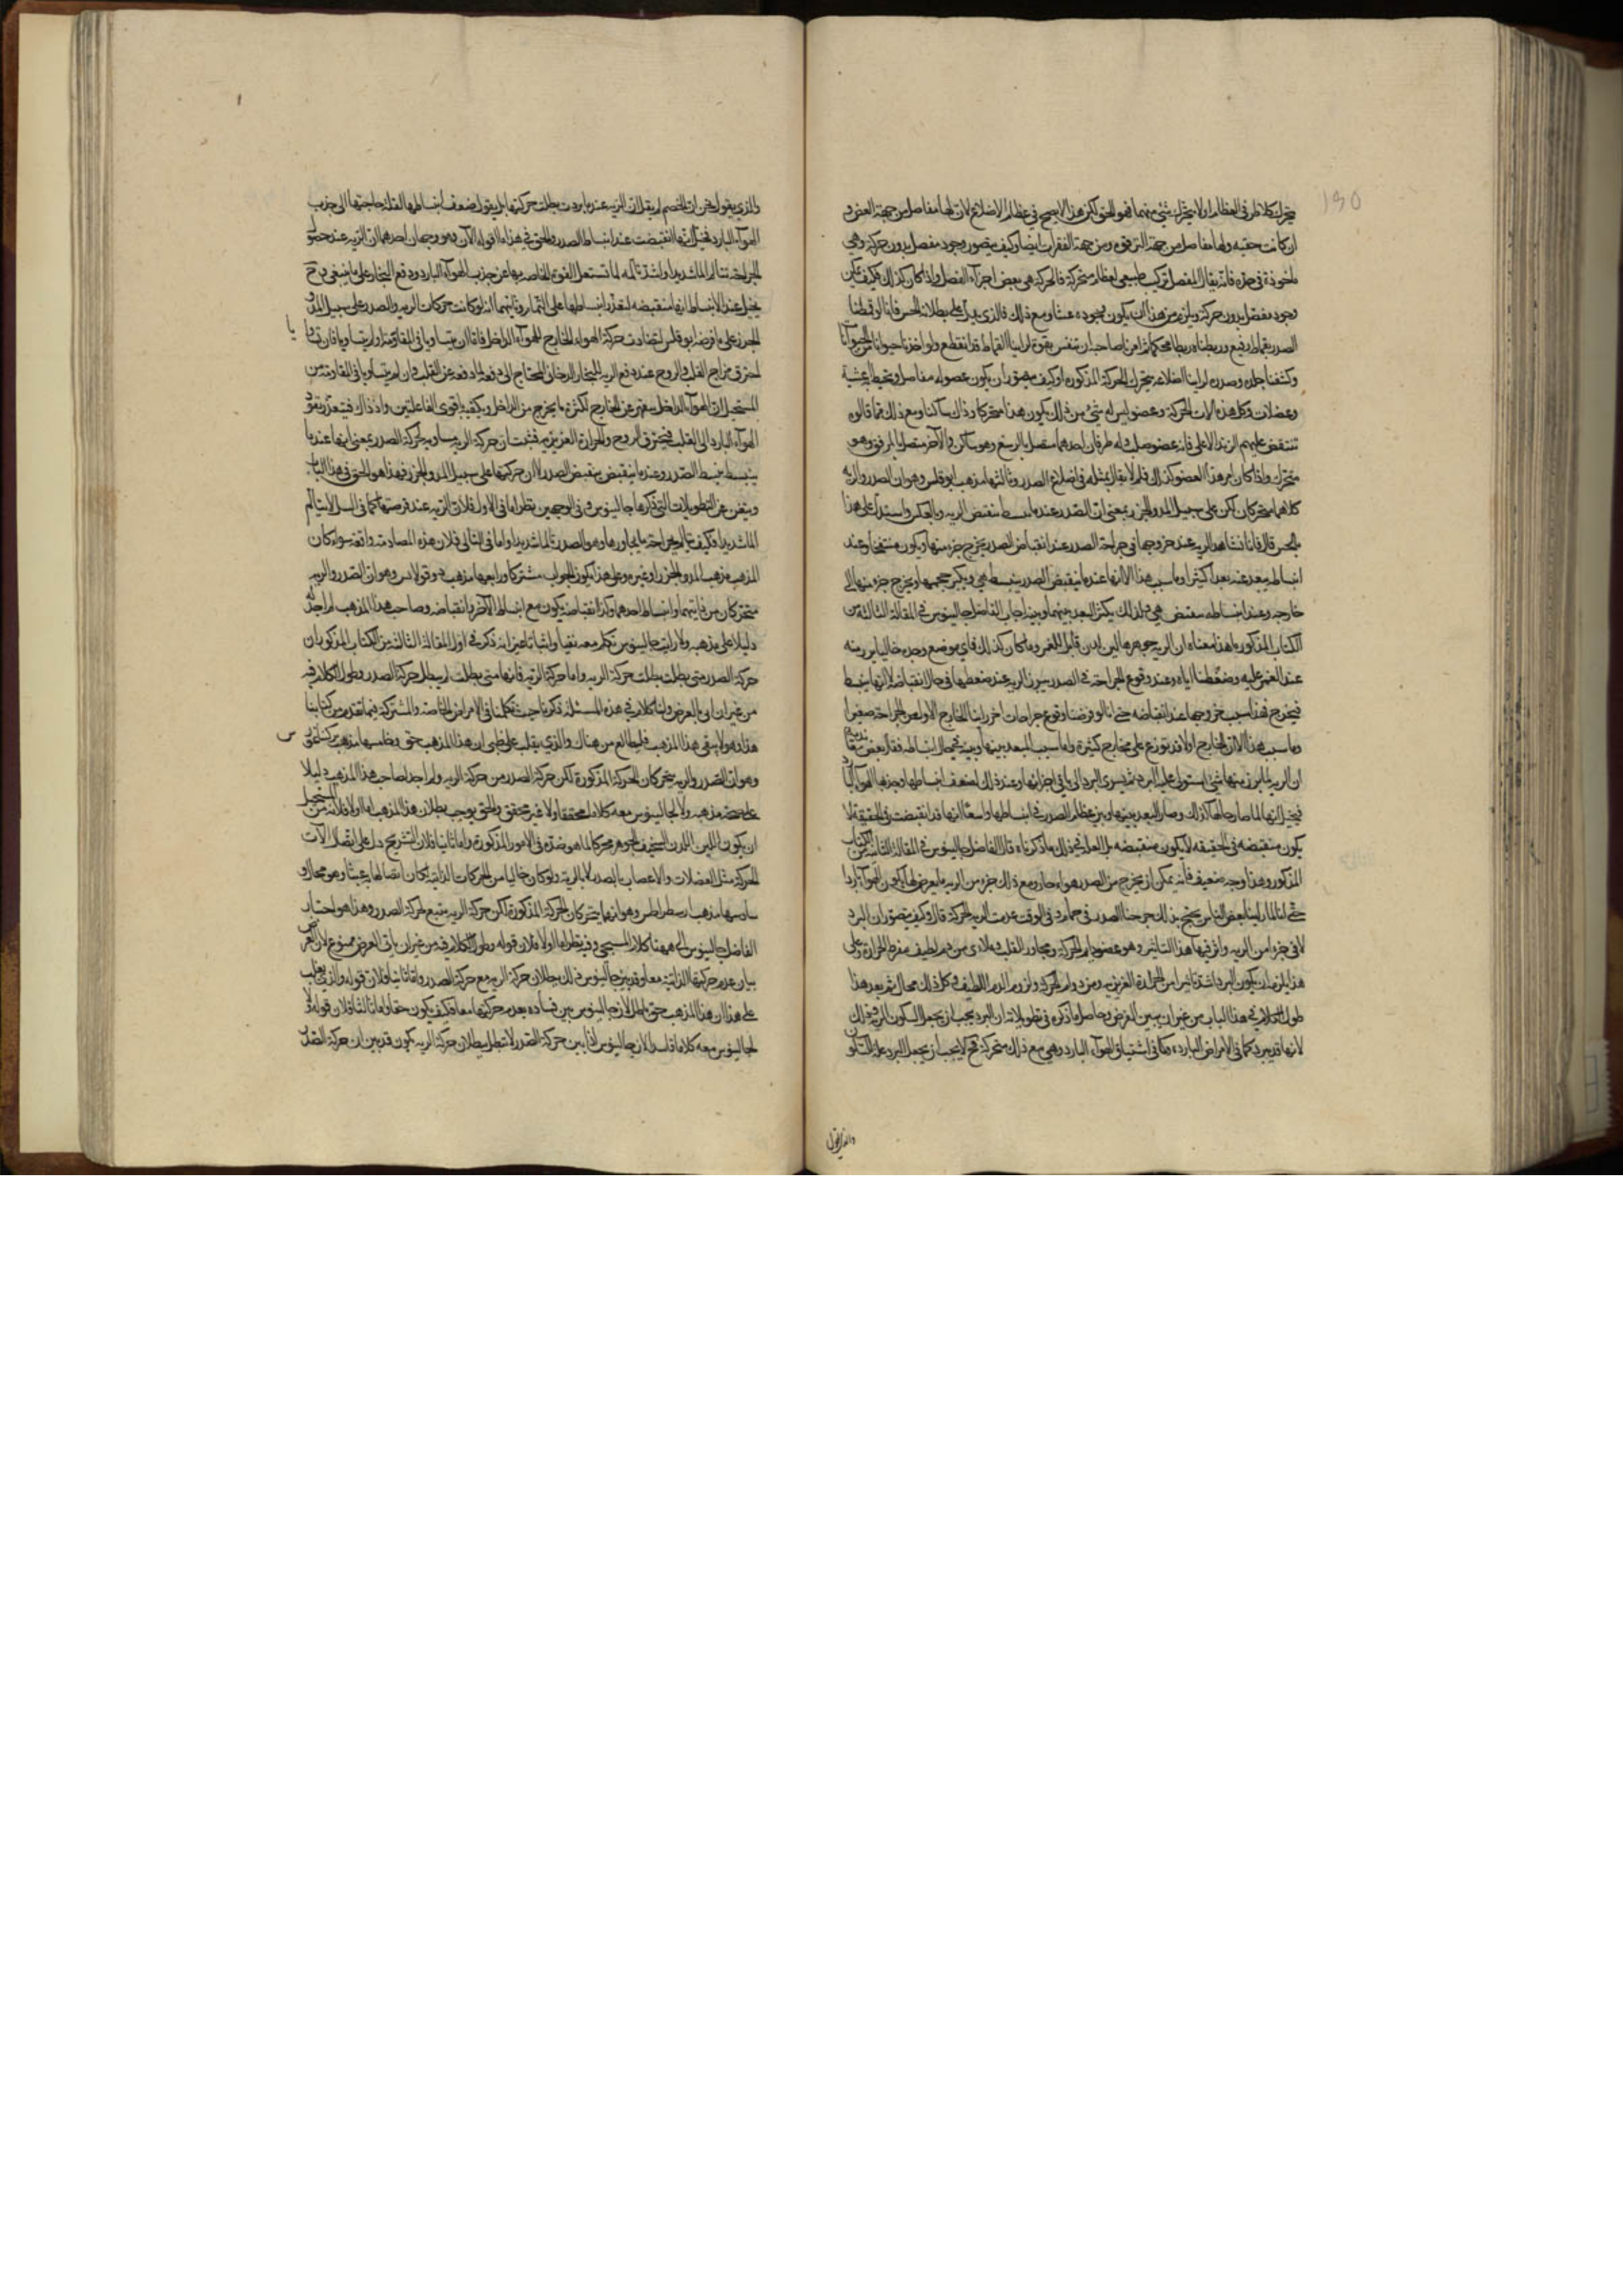 190
يتحرك كلا طرفي العظام اولا يتحرك شئ منهما فهو الحق لكن هذا لا يصح في عظام الاضلاع لان لها مفاصل من جهة العنق و
ان كانت خفيه ولها مفاصل من جهة الترقوه ومن جهة الفقرات ايضا وكيف يتصور وجود مفصل بدون حركة وهي
ماخوذة في حده فانه يقال المفصل تركيب طبيعي لعظام متحركة فالحركة هي بعض اجزاء الفصل واذا كان كذلك فكيف يمكن
وجود مفصل بدون حركة ويلزم من هذا ان يكون وجوده عبثا ومع ذلك فالذي يدل على بطلانه الحس فانا لو قمطنا
الصدر بقماط رفيع وربطناه ربطا محكما ثم امرنا صاحبه ان يتنفس بقوة لراينا القماط قد انقطع ولو اخذنا حيوانا من الحيوانات
وكشفنا جلده وصدره لراينا اضلاعه تتحرك الحركة المذكوره وكيف يتصور ان يكون عضو له مفاصل ويحيط به اغشية
وعضلات وكل هذه آلات الحركة وعضو ليس له شئ من ذلك يكون هذا متحركا وذلك ساكنا ومع ذلك فما قالوه
ينتقض عليهم الزند الاعلى فانه عضو صلب وله طرفان احدهما متصل بالرسغ وهو ساكن والآخر متصل بالمرفق وهو
متحرك واذا كان امر هذا العضو كذلك فلم لا يقال بمثله في اضلاع الصدر وثالثها مذهب ابوقلس وهو ان الصدر والرئة
كلاهما متحركان لكن على سبيل المد والجزر بمعنى ان الصدر عندما ينبسط تنقبض الريه وبالعكس واستدل على هذا
بالحس قال فانا نشاهد الريه عند خروجها في جراحة الصدر عند انقباض الصدر يخرج جزء منها ويكون منتفخا وعند
انبساطه يبعد عنه بعدا كثيرا وما سبب هذا الا انها عندما ينقبض الصدر ينبسط هي ويكبر حجمها ويخرج جزء منها الى
خارجه وعند انبساطه تنقبض هي ولذلك يكثر البعد بينهما وبينه اجاب الفاضل جالينوس في المقالة الثالثة من
الكتاب المذكور بما هذا معناه ان الريه جوهرها لين لدن قابل للغمز وما كان كذلك فاي موضع وجده خاليا برز منه
عند الغمز عليه وضغطنا اياه وعند وقوع الجراحة في الصدر يبرز الريه عند ضغطها في حال انقباضه لا انها ينبسط
فيخرج فهذا سبب خروجها عند انقباضه حتى انا لو فرضنا وقوع جراحات اخر راينا الخارج الاول من الجراحة صغيرا
وما سبب هذا الا ان الخارج اولا قد توزع على مخارج كثيرة واما سبب البعد بينها وبينه في حال انبساطه فقال بعض
ان الريه لما برز منها شئ استولى عليه البرد ثم يسري البرد الى باقي اجزائها وعند ذلك يضعف انبساطها وجذبها الهواء البارد
فيخيل انها لما صار حالها كذلك وصار البعد بينها وبين عظام الصدر في انبساطها واسعا انها قد انقبضت وفي الحقيقة لا
يكون منقبضه في الحقيقه لا يكون منقبضه بل العله في ذلك ما ذكرناه قال الفاضل جالينوس في المقالة الثالثة من الكتاب
المذكور وهذا وجه ضعيف فانه يمكن ان يخرج من الصدر هواء حار ومع ذلك جزء من الريه ما يعرض لها ان يكون الهواء باردا
حتى انا لما راينا بعض الناس يحتج بذلك جرحنا الصدر في حمام وفي الوقت عدمت الريه الحركة قال وكيف يتصور ان البرد
لاقى جزءا من الريه واثر فيها هذا التاثير وهو عضو دايم الحركة ومجاور القلب وملاقى من دم لطيف مفرط الحرارة وعلى
هذا يلزم ان يكون البرد اشد تاثيرا من الحرارة الغريزيه ومن دوام الحركة ولزوم الدم اللطيف وكل ذلك محال ثم بعد هذا
طول الكلام في هذا الباب من غير ان يبين الغرض وحاصل ما ذكره في تطويلاته ان البرد يجب ان يجعل السكون للريه في ذلك
لانها قد يبرد كما في الامراض الباردة وكما في استنشاق الهواء البارد وهي مع ذلك متحركة فح لا يجب ان يجعل البرد علة للسكون
والذي يقول
والذي يقول نحن ان الخصم لم يقل ان الريه عندما بردت بطلت حركتها بل يقول ضعف انبساطها لقلة حاجتها الى جذب
الهواء البارد فيخيل انها انقبضت عند انبساط الصدر والحق في هذا ما اقوله الآن وهو وجهان احدهما ان الريه عند حصول
الجراحة تتالم الما شديدا واشد تالمه لما تستعمل القوى الخاصه بها عن جذب الهواء البارد ودفع البخار على ما ينبغي فح
يخيل عند الانبساط انها منقبضه لتعذر انبساطها على التمام وثانيهما انه لو كانت حركات الريه والصدر على سبيل المد و
الجزر على ما فرضه ابوقلس لتضادت حركة الهواء الخارج للهواء الداخل فاما ان يتساويا في المقاومة او لم يتساويا فان تساويا
احترق مزاج القلب والروح عند دفع الريه للبخار الدخاني المحتاج الى دفعه لما دفعه عن القلب وان لم يتساويا في المقاومة فمن
المستحيل ان الهواء الداخل يقهر عن الخارج لكثرة ما يخرج من الداخل وبكيفيه اقوى الفاعلتين واذ ذاك فيتعذر نفوذ
الهواء البارد الى القلب فيحترق الروح والحرارة الغريزيه فثبت ان حركة الريه مساويه لحركة الصدر بمعنى انها عندما
ينبسط ينبسط الصدر وعندما ينقبض ينقبض الصدر لا ان حركتها على سبيل المد والجزر فهذا هو الحق في هذا الباب
ويتغنى عن التطويلات التي ذكرها جالينوس وفي الوجهين نظر اما في الاول فلان الريه عند قرحتها كما في السل لا يتالم
الما شديدا فكيف تالم عن جراحة ما يجاورها وهو الصدر تالما شديدا واما في الثاني فلان هذه المصادمة واقعة سواء كان
المذهب مذهب المد والجزر او غيره وعلى هذا يكون الجواب مشتركا ورابعها مذهب وهو ان الصدر والريه
متحركان من ذاتيهما وانبساط احدهما وكذا انقباضه يكون مع انبساط الآخر وانقباضه وصاحب هذا المذهب لم اجد له
دليلا على مذهبه ولا رايت جالينوس تكلم معه نفيا واثباتا غير انه ذكر في اول المقالة الثالثة من الكتاب المذكور ان
حركة الصدر متى بطلت بطلت حركة الريه واما حركة الريه فانها متى بطلت لم يبطل حركة الصدر وطول الكلام فيه
من غير ان اتى بالغرض ولنا كلام في هذه المسئلة ذكرناه حيث تكلمنا في الامراض الخاصة والمشتركة فيما تقدم من كتابنا
هذا وهو لا يبقى هذا المذهب فليطالع من هناك والذي يغلب على ظني ان هذا المذهب حق وخامسها مذهب
وهو ان الصدر والريه يتحركان الحركة المذكورة لكن حركة الصدر من حركة الريه ولم اجد لصاحب هذا المذهب دليلا
على صحة مذهبه ولا لجالينوس معه كلاما محققا ولا غير محقق والحق يوجب بطلان هذا المذهب اما اولا فلانه من المستحيل
ان يكون اللين اللدن السخيف الجوهر محركا لما هو ضده في الامور المذكورة واما ثانيا فلان التشريح دل على اتصال آلات
الحركة مثل العضلات والاعصاب بالصدر لا بالريه ولو كان خاليا من الحركات الذاتيه لكان اتصالها به عبثا وهو محال و
سادسها مذهب ارسطوطالس وهو انهما يتحركان الحركة المذكورة لكن حركة الريه يتبع لحركة الصدر وهذا هو اختيار
الفاضل جالينوس الى ههنا كلام المسيحي وفيه نظر اما اولا فلان قوله وطول الكلام فيه من غير ان ياتي بالغرض ممنوع لان الغرض
بيان عدم حركتها الذاتية معا وقد بين جالينوس ذلك ببطلان حركة الريه مع حركة الصدر واما ثانيا فلان قوله والذي يغلب
على هذا ان هذا المذهب حق باطل لان جالينوس بين فساده بعدم حركتها معا فكيف يكون حقا واما ثالثا فلان قوله ولا
لجالينوس معه كلاما فاسد لان جالينوس اذا بين حركة الصدر لا تبطل ببطلان حركة الريه يكون قد بين ان حركة الصدر